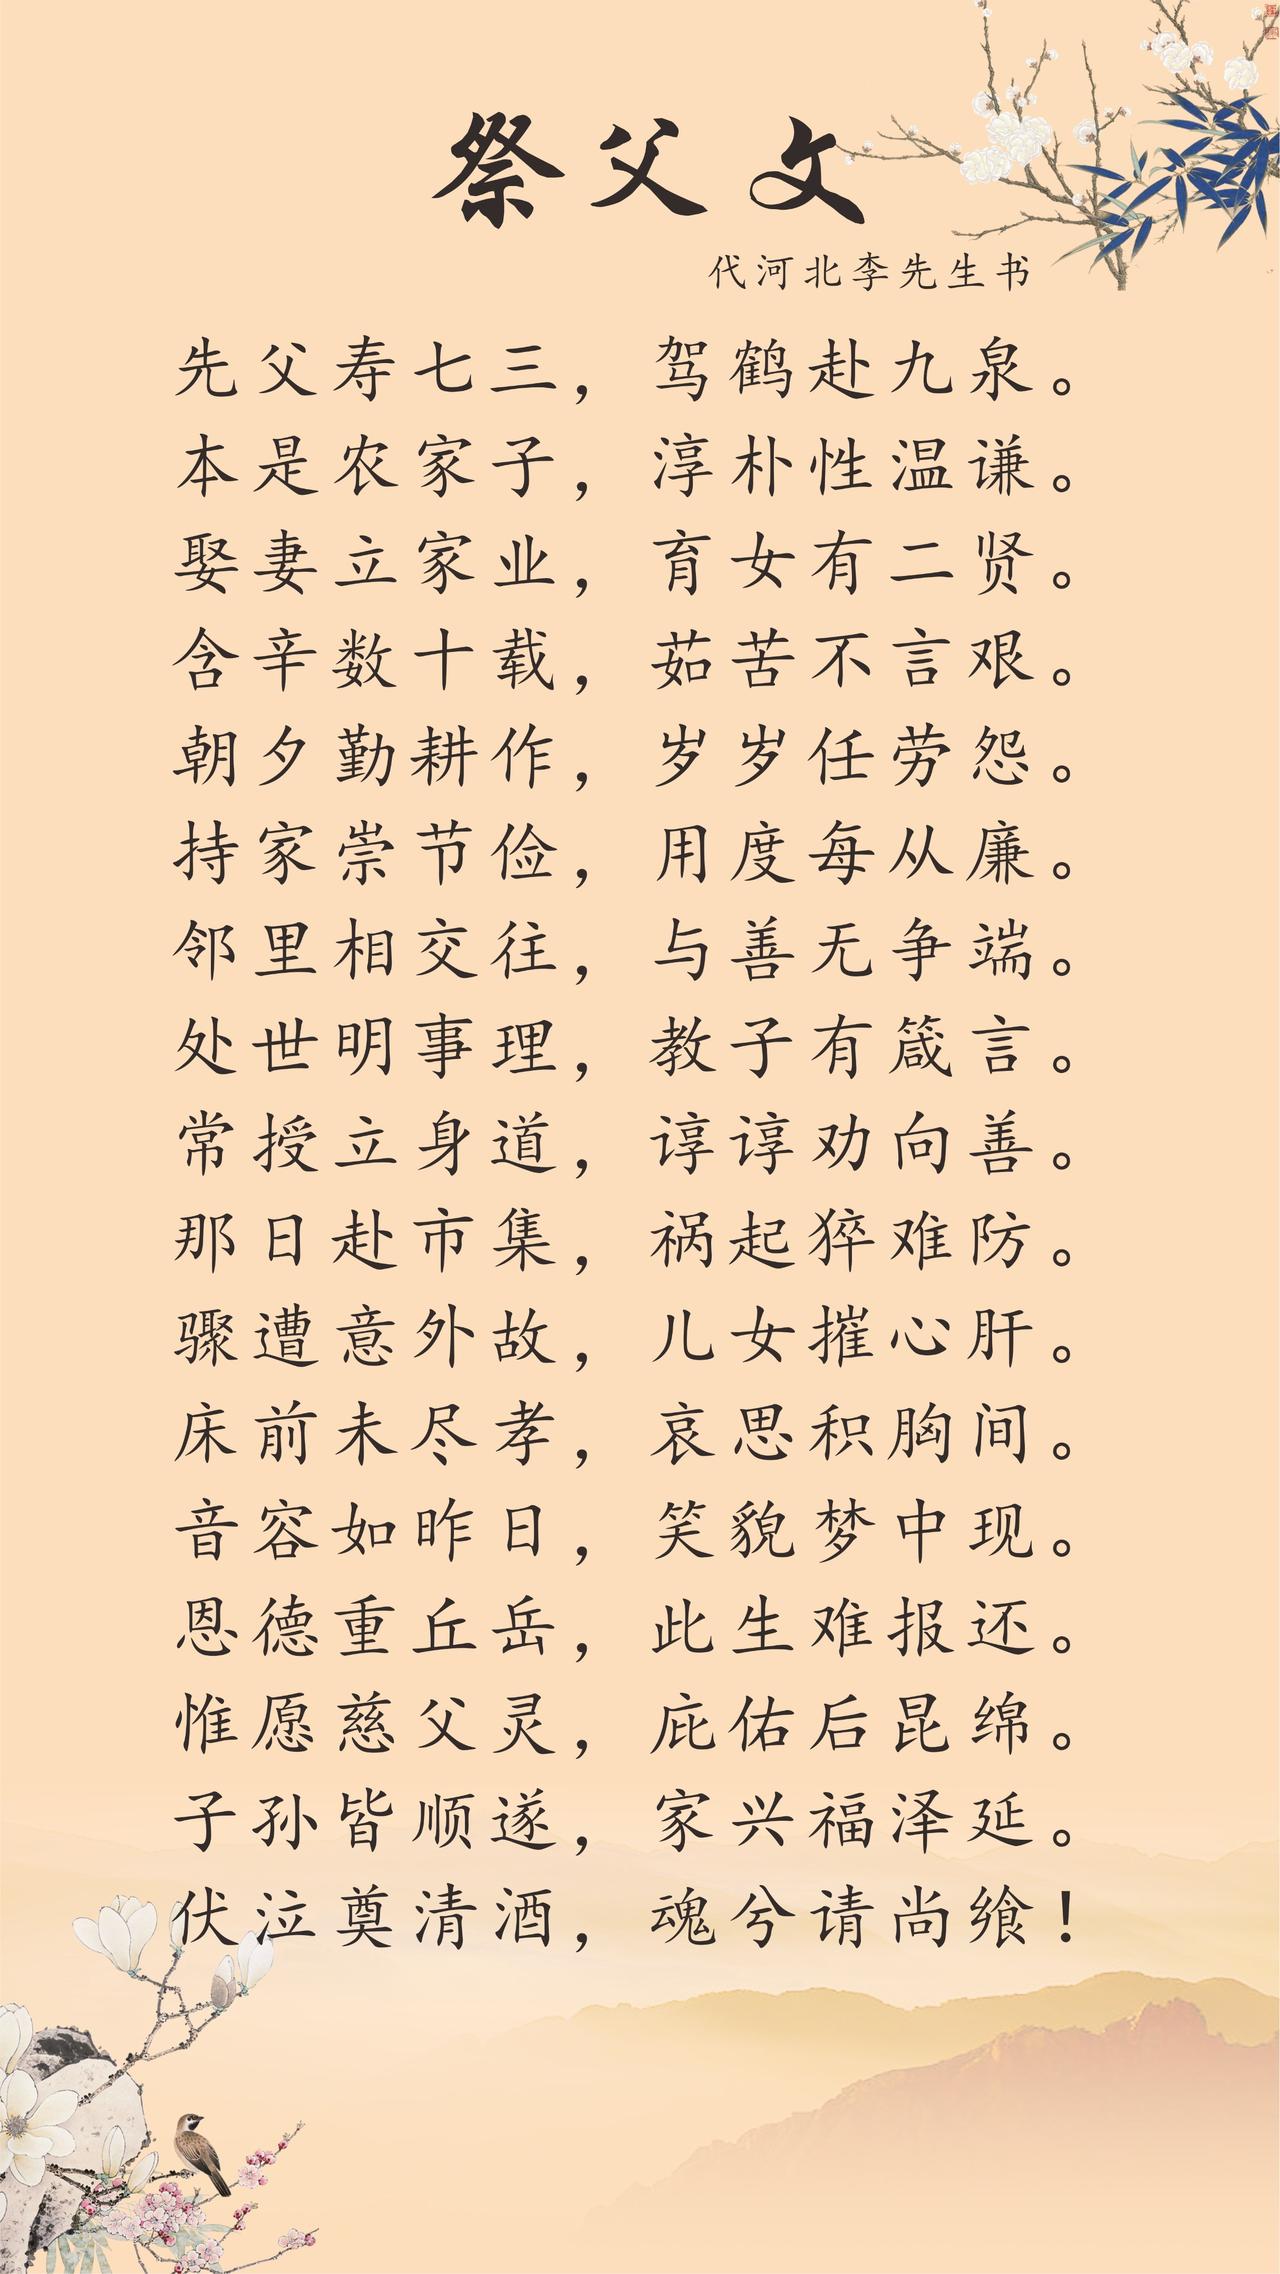 祭父文
代河北李先生书
先父寿七三，驾鹤赴九泉。
本是农家子，淳朴性温谦。
娶妻立家业，育女有二贤。
含辛数十载，茹苦不言艰。
朝夕勤耕作，岁岁任劳怨。
持家崇节俭，用度每从廉。
邻里相交往，与善无争端。
处世明事理，教子有箴言。
常授立身道，谆谆劝向善。
那日赴市集，祸起猝难防。
骤遭意外故，儿女摧心肝。
床前未尽孝，哀思积胸间。
音容如昨日，笑貌梦中现。
恩德重丘岳，此生难报还。
惟愿慈父灵，庇佑后昆绵。
子孙皆顺遂，家兴福泽延。
伏泣奠清酒，魂兮请尚飨！